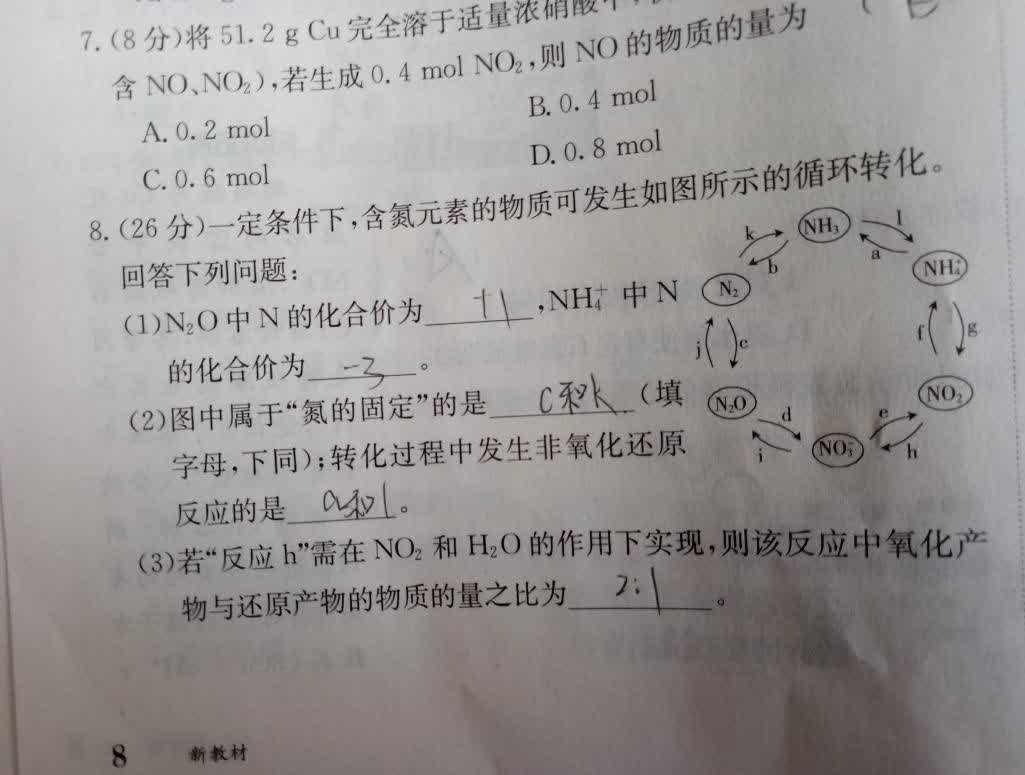 7.(8分)将51.2 g Cu完全溶于适量浓硝酸中,
含NO、NO₂),若生成0.4 mol NO₂,则NO的物质的量为
A. 0.2 mol
B. 0.4 mol
C. 0.6 mol
D. 0.8 mol
8.(26分)一定条件下,含氮元素的物质可发生如图所示的循环转化。
回答下列问题:
(1)N₂O中N的化合价为 +1 ,NH₄⁺中N
的化合价为 -3 。
(2)图中属于“氮的固定”的是 c和k (填
字母,下同);转化过程中发生非氧化还原
反应的是 a和l 。
(3)若“反应h”需在NO₂和H₂O的作用下实现,则该反应中氧化产
物与还原产物的物质的量之比为 2:1 。
NH₃
k
l
b
a
N₂
NH₄⁺
j
c
f
g
N₂O
NO₂
d
e
i
NO₃⁻
h
8 新教材